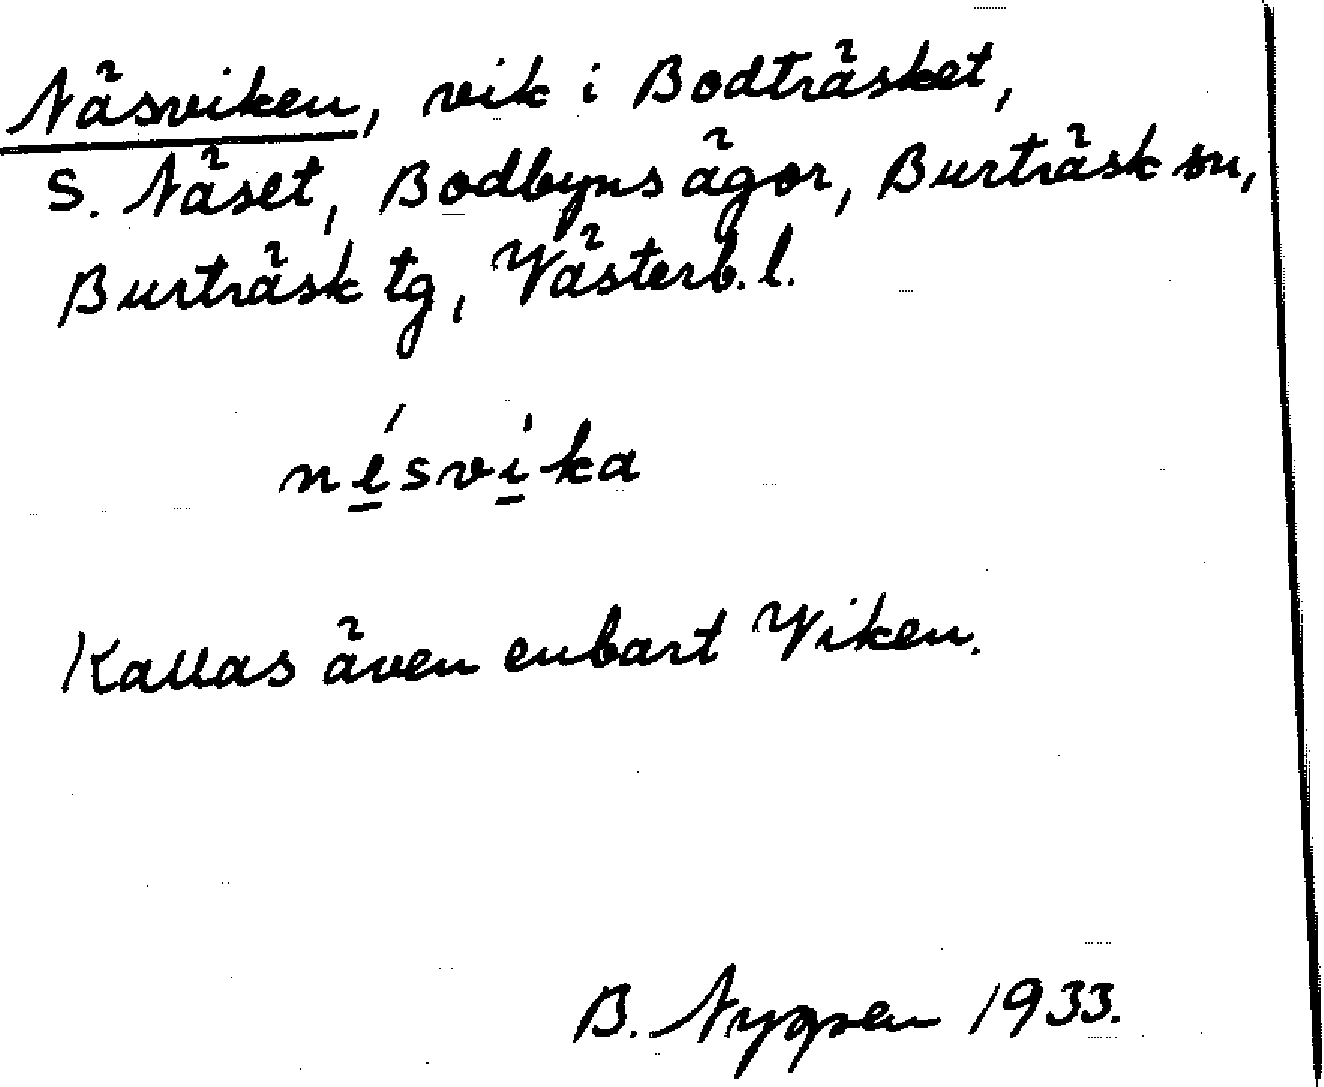 Näsviken, vik i Bodträsket,
S. Näset, Bodbyns ägor, Burträsk sn,
Burträsk tg, Västerb. l.
nésvika
Kallas även enbart Viken.
B. Nygren 1933.